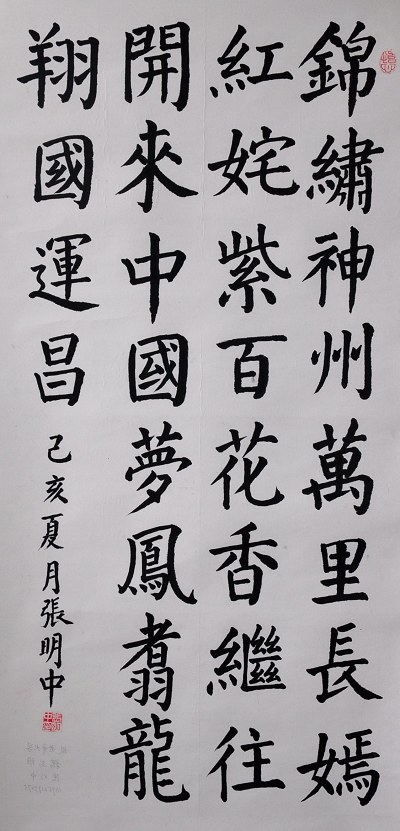 錦繡神州萬里長嫣
紅姹紫百花香繼往
開來中國夢鳳翥龍
翔國運昌
己亥夏月張明中